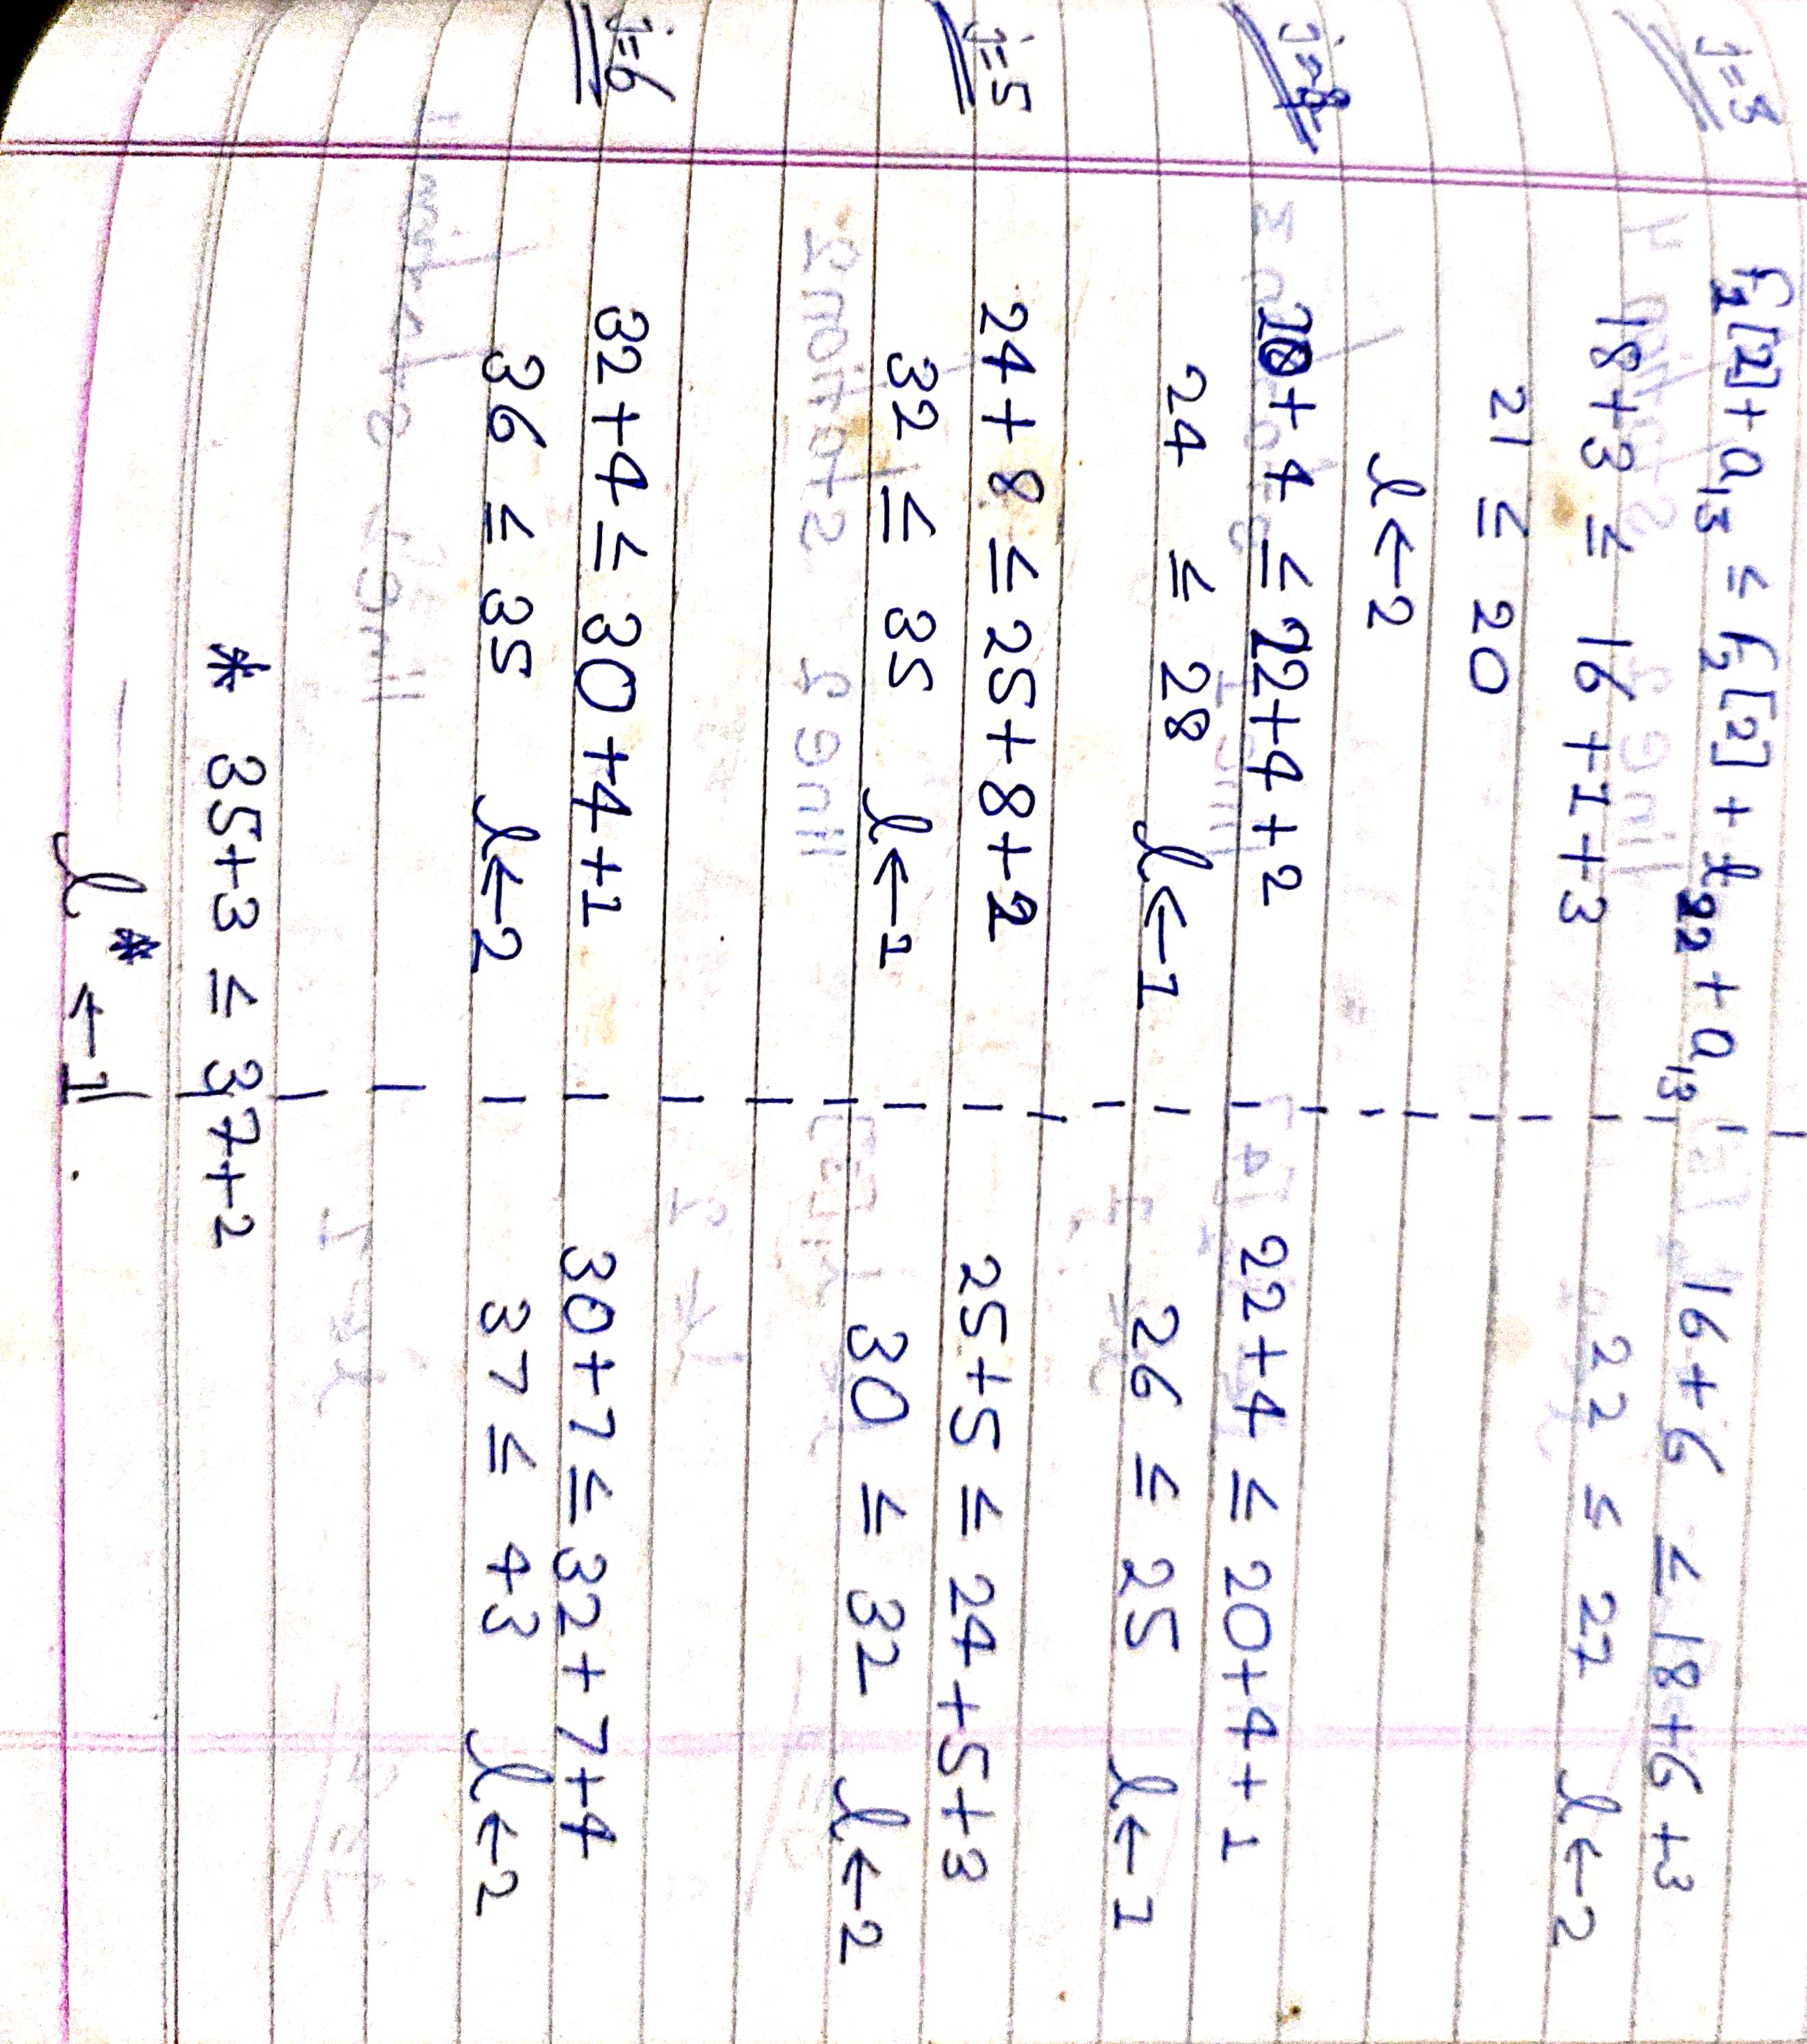 j=3 f₁[2]+a₁₃ ≤ f₂[2]+t₂₂+a₁₃ | 16+6 ≤ 18+6+3
18+3 ≤ 16+1+3 | 22 ≤ 27 l←2
21 ≤ 20
l←2
j=4 20+4 ≤ 22+4+2 | 22+4 ≤ 20+4+1
24 ≤ 28 l←1 | 26 ≤ 25 l←1
j=5 24+8 ≤ 25+8+2 | 25+5 ≤ 24+5+3
32 ≤ 35 l←1 | 30 ≤ 32 l←2
j=6 32+4 ≤ 30+4+1 | 30+7 ≤ 32+7+4
36 ≤ 35 l←2 | 37 ≤ 43 l←2
* 35+3 ≤ 37+2
l* ←1